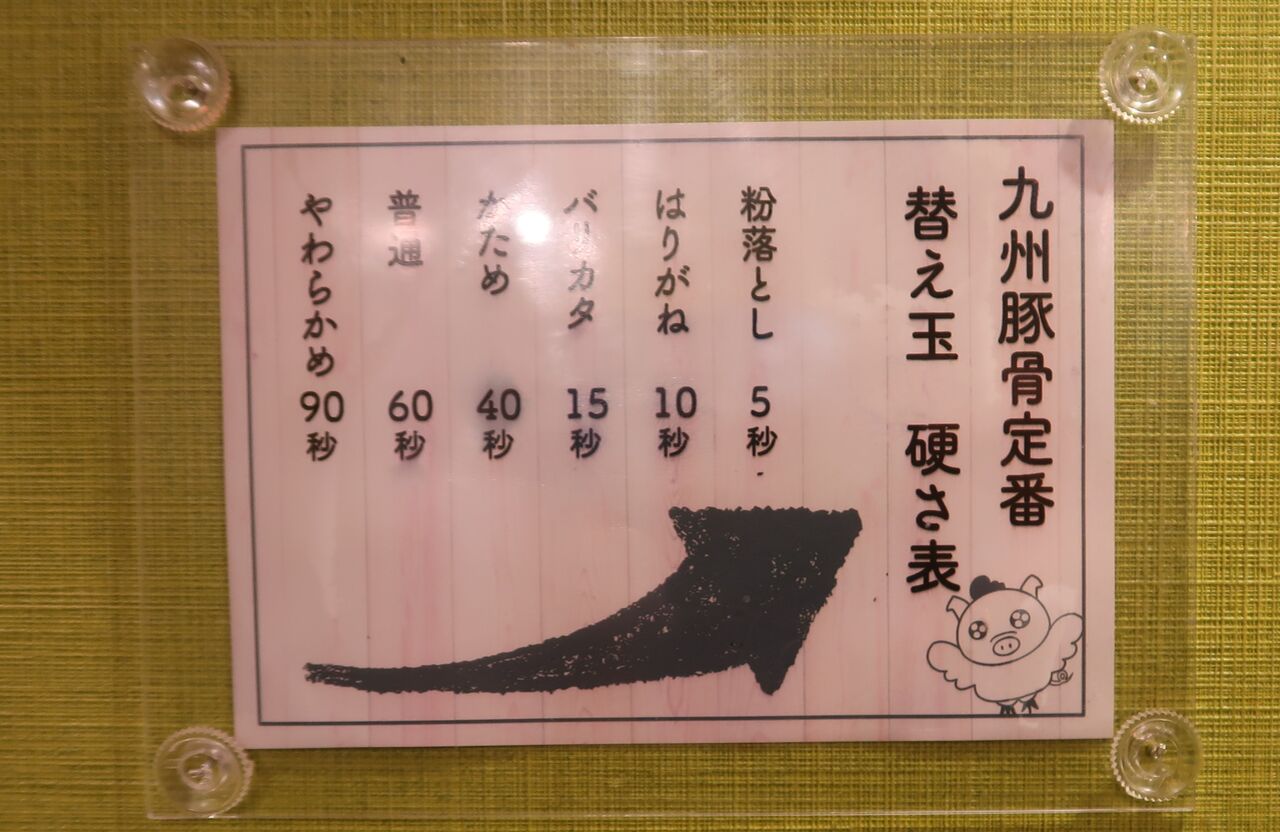 九州豚骨定番
替え玉 硬さ表
粉落とし 5秒
はりがね 10秒
バリカタ 15秒
かため 40秒
普通 60秒
やわらかめ 90秒